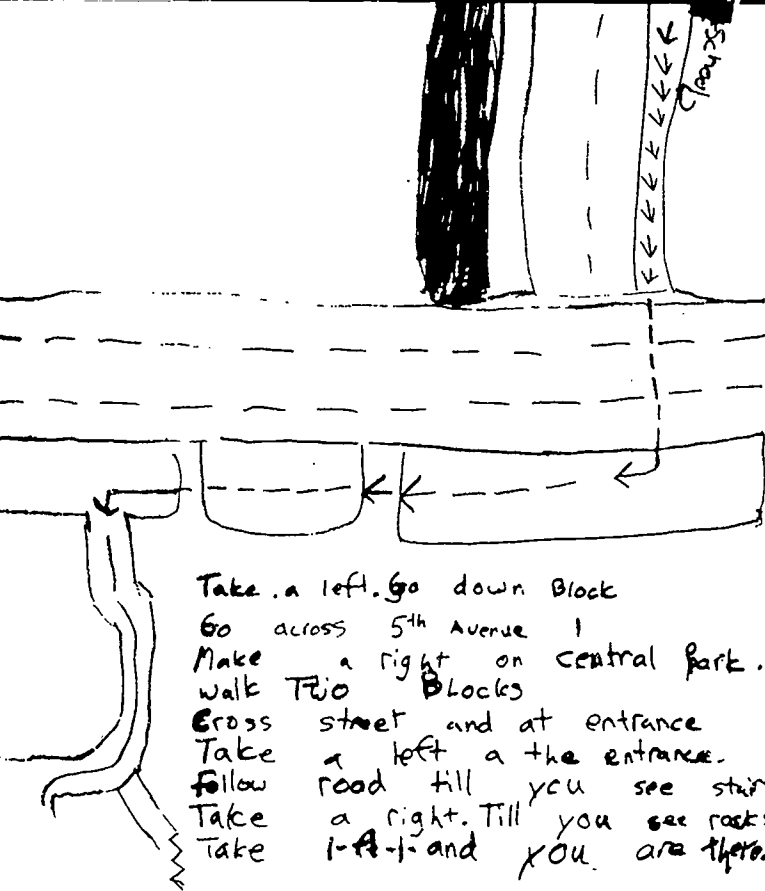 School
Take a left. Go down Block
Go across 5th Avenue
Make a right on central Park.
walk Two Blocks
Cross street and at entrance
Take a left a the entrance.
follow road till you see stair
Take a right. Till you see rocks
Take and you are there.